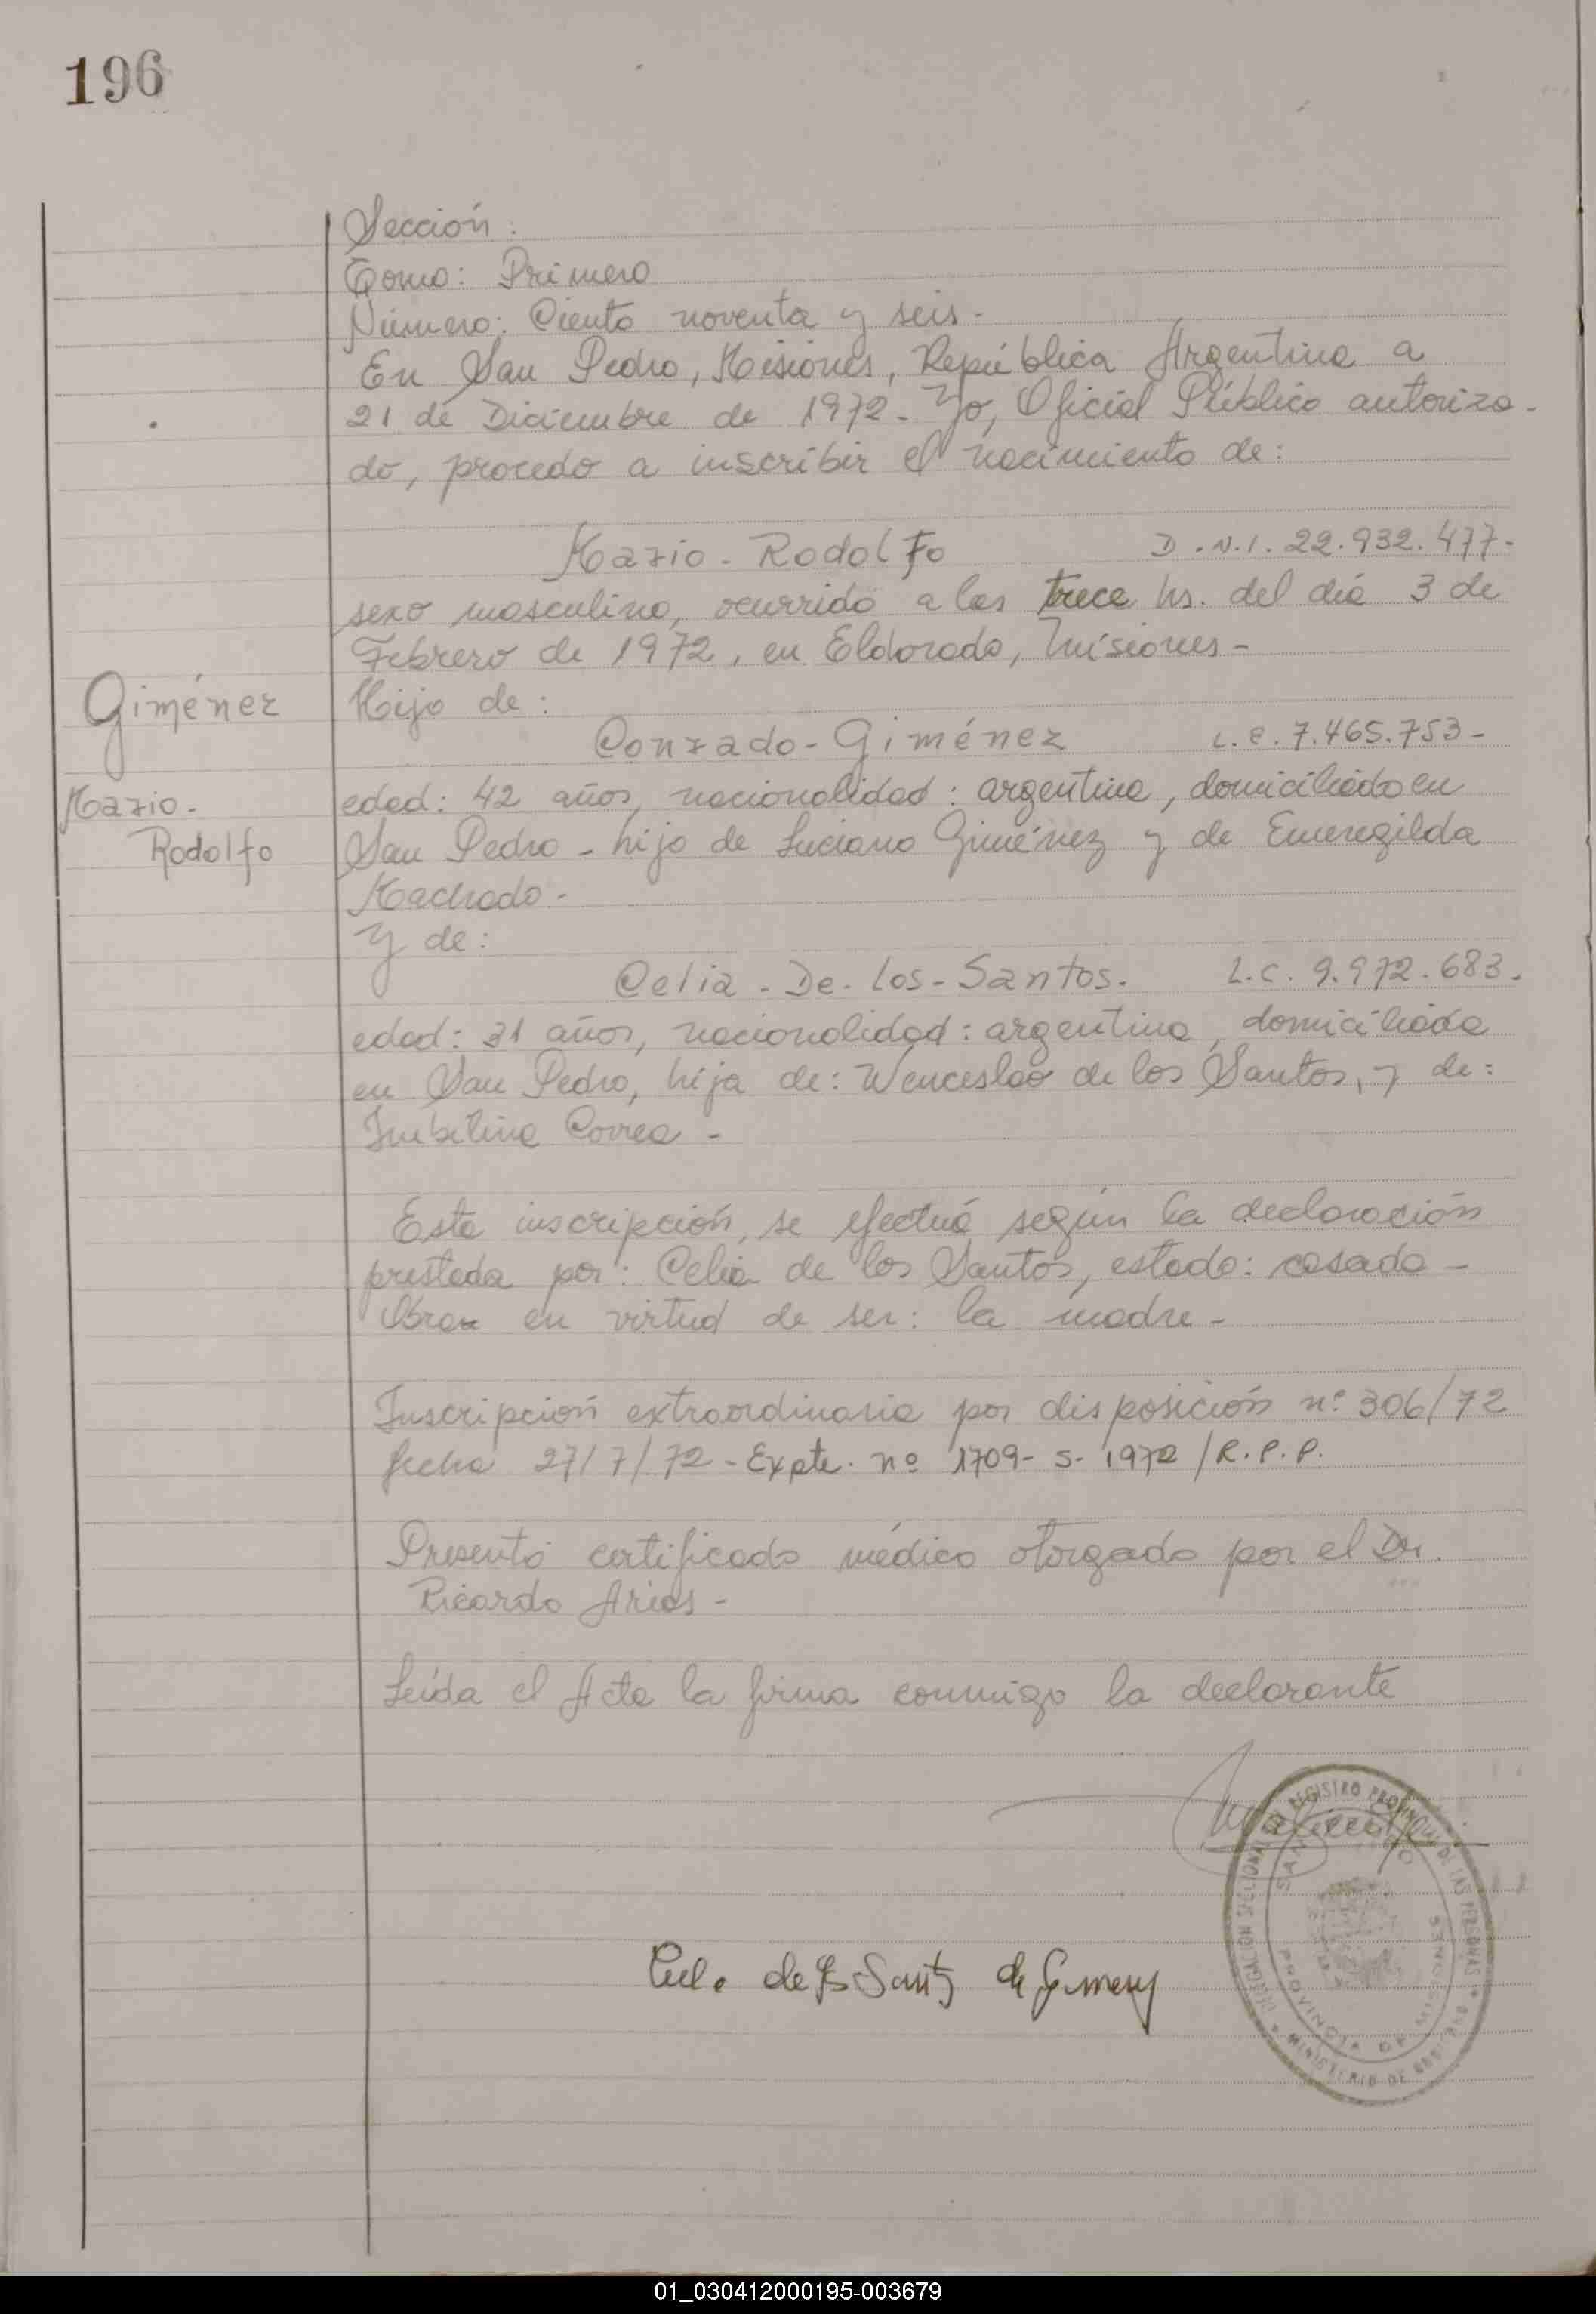 196
Sección:
Tomo: Primero
Número: Ciento noventa y seis-
En San Pedro, Misiones, República Argentina a
21 de Diciembre de 1972- Yo, Oficial Público autoriza-
do, procedo a inscribir el nacimiento de:
Mario-Rodolfo D.N.I. 22.932.477-
sexo masculino, ocurrido a las trece hs. del día 3 de
Febrero de 1972, en Eldorado, Misiones-
Giménez
Hijo de:
Conrado-Giménez L.E. 7.465.753-
Mario-
Rodolfo
edad: 42 años, nacionalidad: argentina, domiciliado en
San Pedro - hijo de Luciano Giménez y de Emeregilda
Machado-
Y de:
Celia-De-los-Santos. L.C. 9.972.683.
edad: 31 años, nacionalidad: argentina, domiciliada
en San Pedro, hija de: Wenceslao de los Santos, y de:
Correa -
Esta inscripción, se efectuó según la declaración
prestada por: Celia de los Santos, estado: casada -
en virtud de ser: la madre-
Inscripción extraordinaria por disposición nº 306/72
fecha 27/7/72 - Expte. nº 1709- S- 1972 /R.P.P.
Presentó certificado médico otorgado por el Dr.
Ricardo Arias-
Leída el Acta la firma conmigo la declarante
DELEGACION SECCIONAL DE REGISTRO PROVINCIAL DE LAS PERSONAS
SAN PEDRO
PROVINCIA DE MISIONES
MINISTERIO DE
de los Santos de
01_030412000195-003679